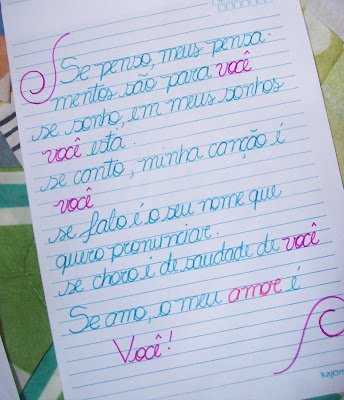 Se penso, meus pensa-
mentos são para você
se sonho, em meus sonhos
você está.
se canto, minha canção é
você
se falo é o seu nome que
quero pronunciar.
se choro é de saudade de você
Se amo, o meu amor é
Você!